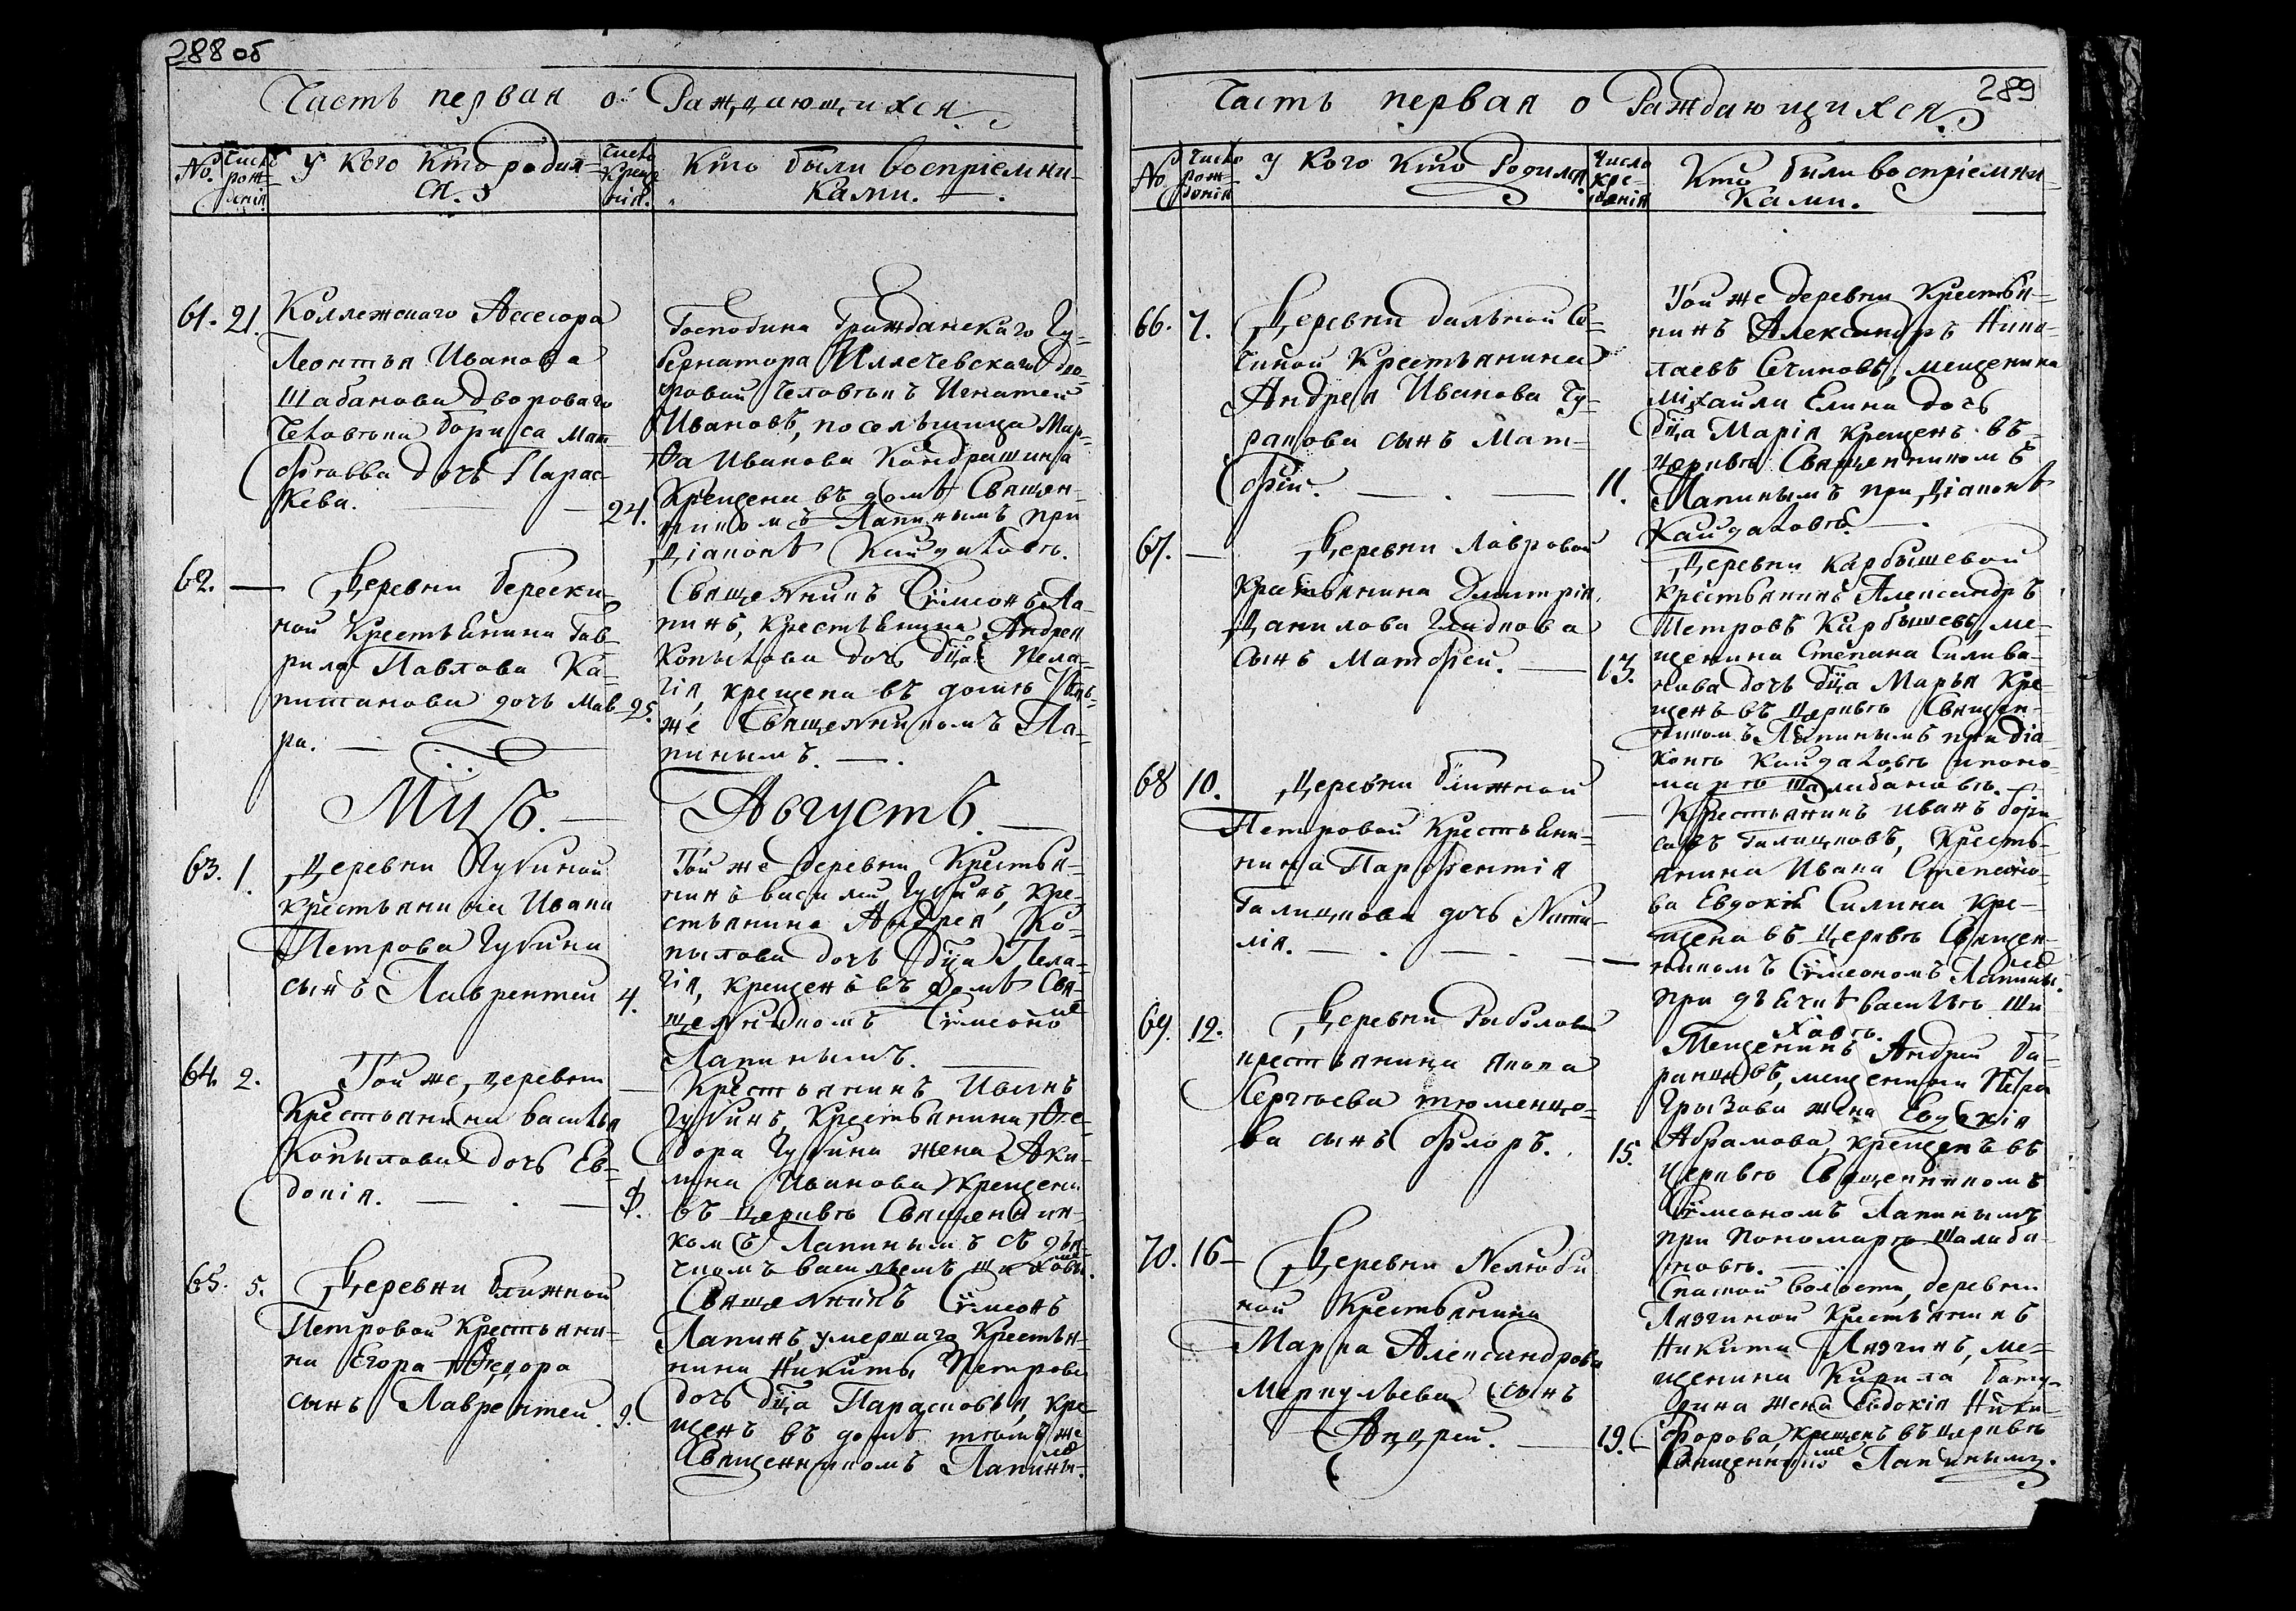 288 об
Часть первая о Раждающихся.
No. Число рожденія
У кого кто родился.
Число крещенія.
Кто были воспріемниками.
61. 21.
Коллежскаго Ассесора
Леонтья Иванова
Шабанова двороваго
Человѣка бориса Мат
офѣева дочь Парас-
кева. 24.
Господина Гражданскаго Гу-
бернатора Иллечевскаго дво-
ровой человѣкъ Игнатей
Ивановъ, поселыцица Мар-
фа Иванова Кондрашина
Крещена въ домѣ Священ-
никомъ Лапинымъ при
Діаконѣ Кайдаловѣ.
62. —
Деревни березки-
ной Крестьянина Гав-
рила Павлова Ка-
питанова дочь Мав 25.
ра.
Священникъ Сѵмеонъ Ла-
пинъ, крестьянина Андрея
Копылова дочь дѣца Пела-
гія, крещена въ домѣ тѣмъ-
же Священникомъ Ла-
пинымъ.
Мцъ. Августъ.
63. 1.
Деревни Губиной
крестьянина Ивана
Петрова Губина
сынъ Лаврентей 4.
Той же деревни Крестья-
нинъ василій Губинъ, кре-
стьянина Андрея Ко-
пылова дочь дѣца Пела-
гія, крещенъ въ домѣ Свя-
щенникомъ Сѵмеоно мъ
Лапинымъ.
64. 2.
Той же деревни
Крестьянина василья
Копылова дочь Ев-
докія. 8.
Крестьянинъ Иванъ
Губинъ, Крестьянина Фе-
дора Губина жена Аку-
лина Иванова крещена
въ церквѣ Священни-
комъ Лапинымъ съ дья-
чкомъ васильемъ Шаховы мъ.
65. 5.
Деревни ближной
Петровой Крестьяни-
на Егора Федора
сынъ Лаврентей. 9.
Священникъ Сѵмеонъ
Лапинъ, умершаго Крестья-
нина Никиты Петрова
дочь дѣца Парасковья, кре
щенъ въ домѣ тѣмъ же
Священникомъ Лапины мъ.
289
Часть первая о Раждающихся.
No Число рожденія
У кого кто Родился.
Числа крещенія
Кто были воспріемни-
ками.
66. 7.
Деревни дальной Се-
чиной Крестьянина
Андрея Иванова Чу-
ракова сынъ Мат-
офей. 11.
Той же деревни Крестья-
нинъ Александръ Нико-
лаевъ Сечиновъ, мещенина
Міхаила Елина дочь
дѣца Марія крещенъ въ
церквѣ Священникомъ
Лапинымъ при Діаконѣ
Кайдаловѣ.
67. —
Деревни Лавровой
Крестьянина Дмитрія
Данилова Гладкова
сынъ Матофей. 13.
Деревни Карбышевой
крестьянинъ Александръ
Петровъ Карбышевъ, ме-
щенина Степана Силива-
нова дочь дѣца Марья Кре-
щенъ въ церквѣ Священ-
никомъ Лапинымъ при діа-
конѣ Кайдаловѣ и поно-
марѣ Шалабановѣ.
68 10.
Деревни ближной
Петровой Крестьяни-
нина Парофентія
Галицкова дочь Ната-
лія. —
Крестьянинъ иванъ бори-
совъ Галицковъ, Кресть-
янина Ивана Степано-
ва Евдокія Силина Кре-
щена въ Церквѣ Священ-
никомъ Сѵмеономъ Лапины мъ.
при дьячкѣ васильѣ Ша
ховѣ.
69. 12.
Деревни Рыбаловой
крестьянина якова
Сергѣева тюменцо-
ва сынъ офлоръ. 15.
Мещенинъ Андрей ба-
ранцовъ, мещенина Петра
Грызова жена Евдокія
Абрамова, крещенъ въ
церквѣ Священникомъ
Сѵмеономъ Лапинымъ
при Пономарѣ Шалаба-
новѣ.
70. 16
Деревни Нелюби
ной Крестьянина
Марка Александрова
Меркульева сынъ
Андрей. 19.
Спаской волости, деревни
Лязгиной Крестьянинъ
Никита Лязгинъ, ме-
щенина Кирила бату-
рина жена Евдокія Ники-
форова, крещенъ въ церквѣ
Священникомъ Лапинымъ.